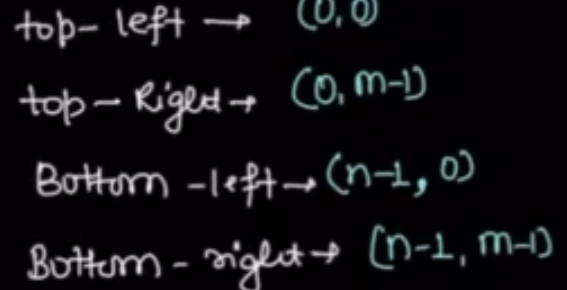 top- left → (0,0)
top - Right → (0, m-1)
Bottom -left → (n-1, 0)
Bottom - right → (n-1, m-1)